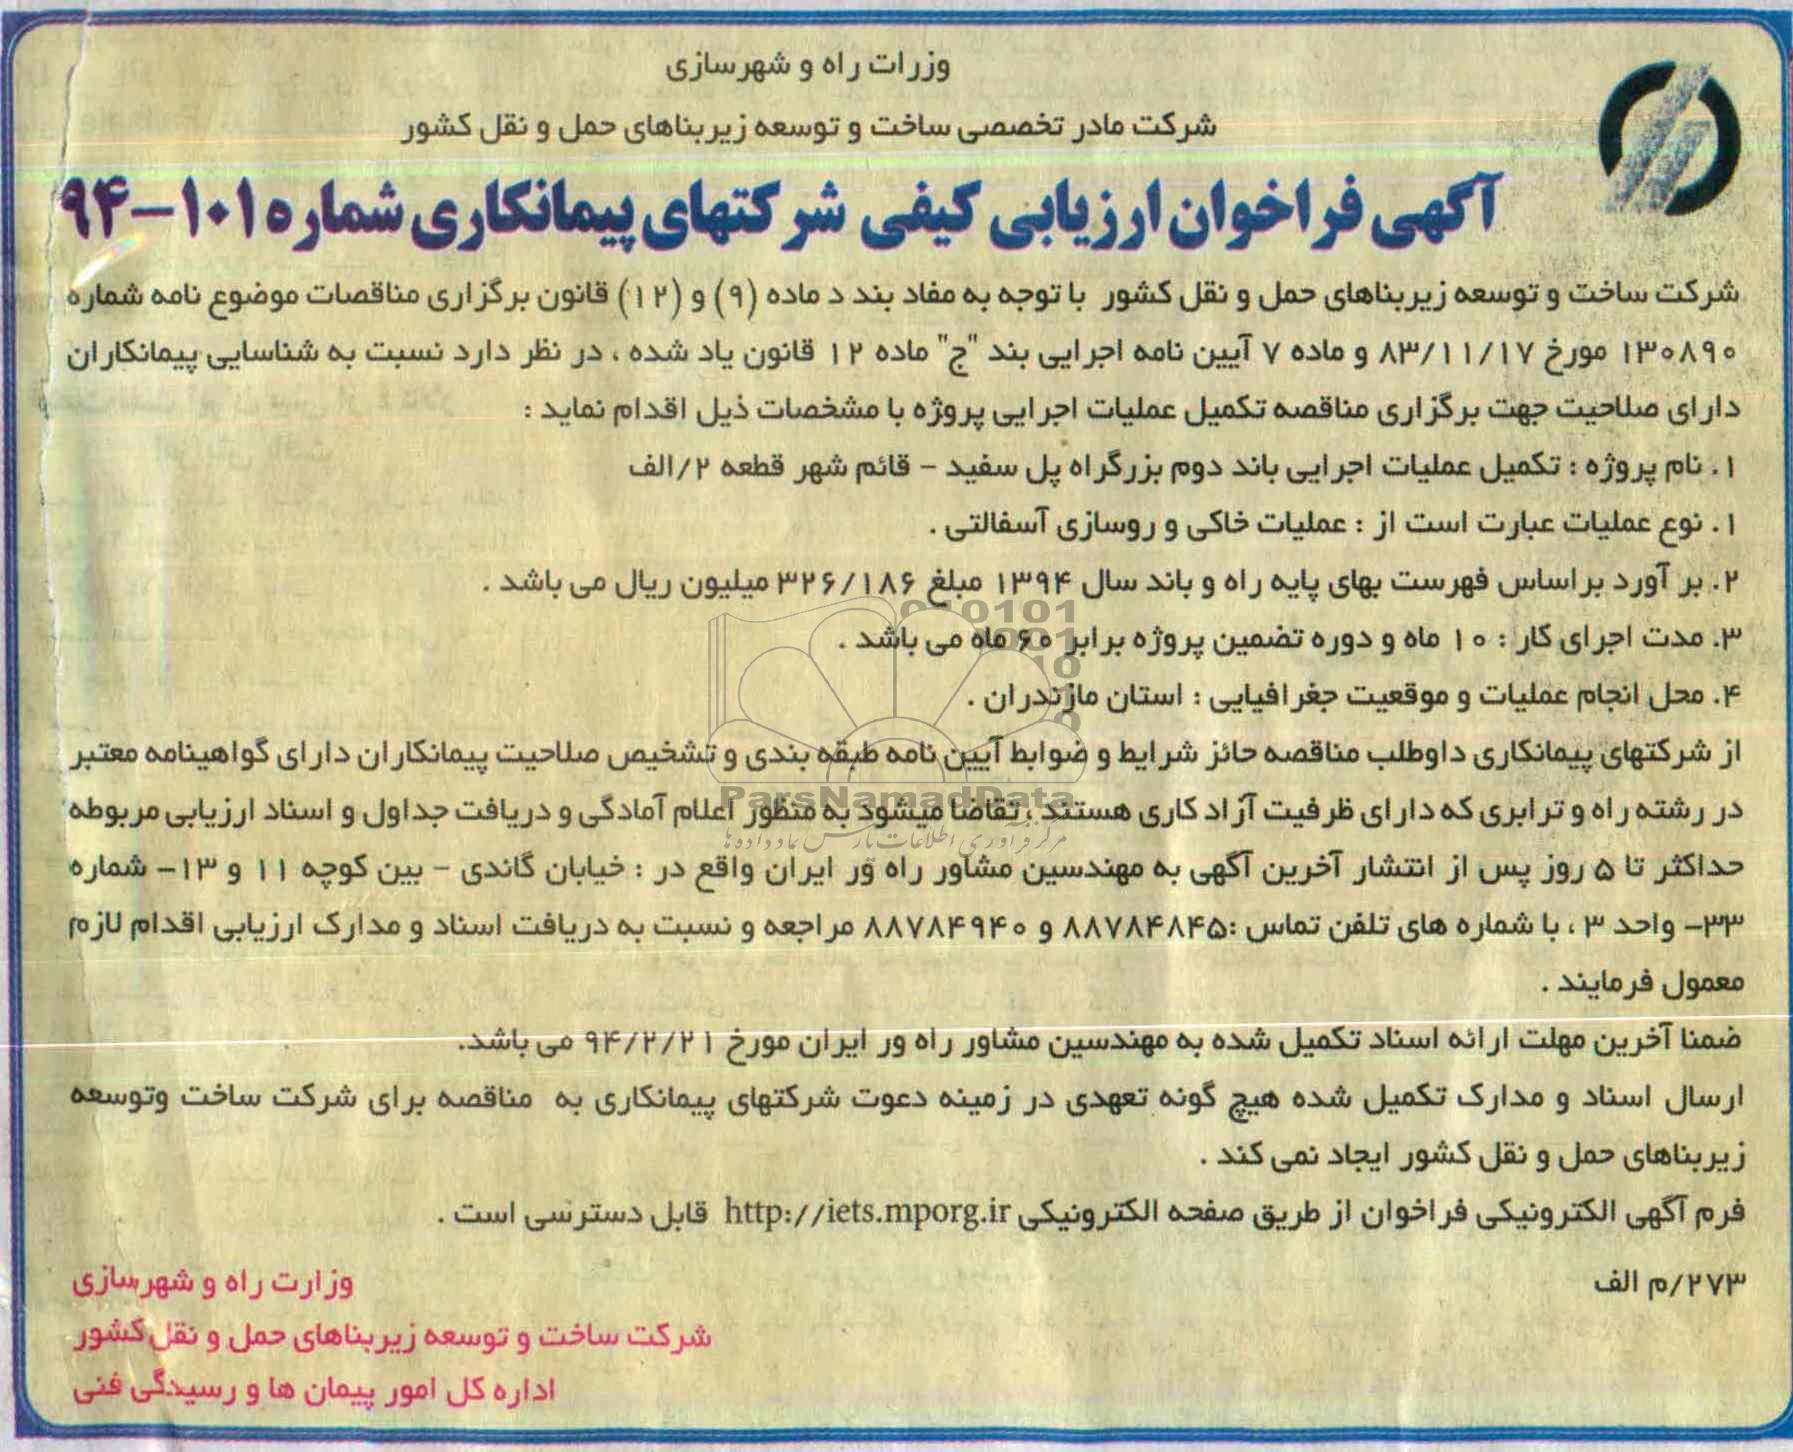 وزرات راه و شهرسازی
شرکت مادر تخصصی ساخت و توسعه زیربناهای حمل و نقل کشور
آگهی فراخوان ارزیابی کیفی شرکتهای پیمانکاری شماره ۱۰۱-۹۴
شرکت ساخت و توسعه زیربناهای حمل و نقل کشور با توجه به مفاد بند د ماده (۹) و (۱۲) قانون برگزاری مناقصات موضوع نامه شماره
۱۳۰۸۹۰ مورخ ۸۳/۱۱/۱۷ و ماده ۷ آیین نامه اجرایی بند "ج" ماده ۱۲ قانون یاد شده ، در نظر دارد نسبت به شناسایی پیمانکاران
دارای صلاحیت جهت برگزاری مناقصه تکمیل عملیات اجرایی پروژه با مشخصات ذیل اقدام نماید :
۱. نام پروژه : تکمیل عملیات اجرایی باند دوم بزرگراه پل سفید - قائم شهر قطعه ۲/الف
۱. نوع عملیات عبارت است از : عملیات خاکی و روسازی آسفالتی .
۲. بر آورد براساس فهرست بهای پایه راه و باند سال ۱۳۹۴ مبلغ ۳۲۶/۱۸۶ میلیون ریال می باشد .
۳. مدت اجرای کار : ۱۰ ماه و دوره تضمین پروژه برابر ۶۰ ماه می باشد .
۴. محل انجام عملیات و موقعیت جغرافیایی : استان مازندران .
از شرکتهای پیمانکاری داوطلب مناقصه حائز شرایط و ضوابط آیین نامه طبقه بندی و تشخیص صلاحیت پیمانکاران دارای گواهینامه معتبر
در رشته راه و ترابری که دارای ظرفیت آزاد کاری هستند ، تقاضا میشود به منظور اعلام آمادگی و دریافت جداول و اسناد ارزیابی مربوطه
حداکثر تا ۵ روز پس از انتشار آخرین آگهی به مهندسین مشاور راه ور ایران واقع در : خیابان گاندی - بین کوچه ۱۱ و ۱۳- شماره
۳۳- واحد ۳ ، با شماره های تلفن تماس :۸۸۷۸۴۸۴۵ و ۸۸۷۸۴۹۴۰ مراجعه و نسبت به دریافت اسناد و مدارک ارزیابی اقدام لازم
معمول فرمایند .
ضمنا آخرین مهلت ارائه اسناد تکمیل شده به مهندسین مشاور راه ور ایران مورخ ۹۴/۲/۲۱ می باشد.
ارسال اسناد و مدارک تکمیل شده هیچ گونه تعهدی در زمینه دعوت شرکتهای پیمانکاری به مناقصه برای شرکت ساخت وتوسعه
زیربناهای حمل و نقل کشور ایجاد نمی کند .
فرم آگهی الکترونیکی فراخوان از طریق صفحه الکترونیکی http://iets.mporg.ir قابل دسترسی است .
۲۷۳/م الف
وزارت راه و شهرسازی
شرکت ساخت و توسعه زیربناهای حمل و نقل کشور
اداره کل امور پیمان ها و رسیدگی فنی
ParsNamadData
مرکز فرآوری اطلاعات پارس نماد داده ها